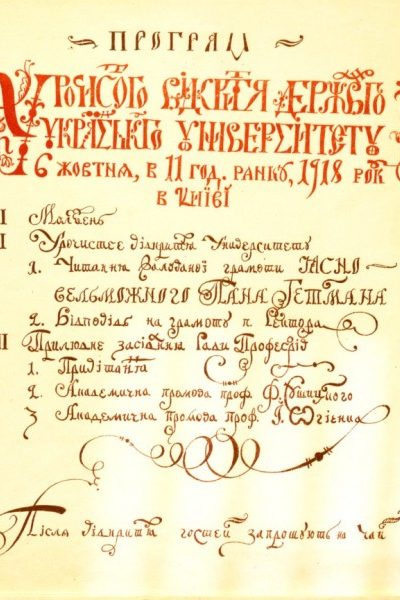 ПРОГРАМ
УРОЧИСТОГО ВІДКРИТТЯ ДЕРЖАВНОГО
УКРАЇНСЬКОГО УНИВЕРСИТЕТУ
6 ЖОВТНЯ, В 11 ГОД. РАНКУ, 1918 РОКУ
В КИЇВІ
I Молебень
II Урочистее відкриття Университету
1. Читання Володаної грамоти ЯСНО-
ВЕЛЬМОЖНОГО ПАНА ГЕТМАНА
2. Відповідь на грамоту п. Ректора
III Прилюдне засідання Ради Професорів
1. Привітання
2. Академична промова проф. Ф. Сушицкого
3 Академична промова проф. І. Огієнка
Після відкриття гостей запрошують на чай